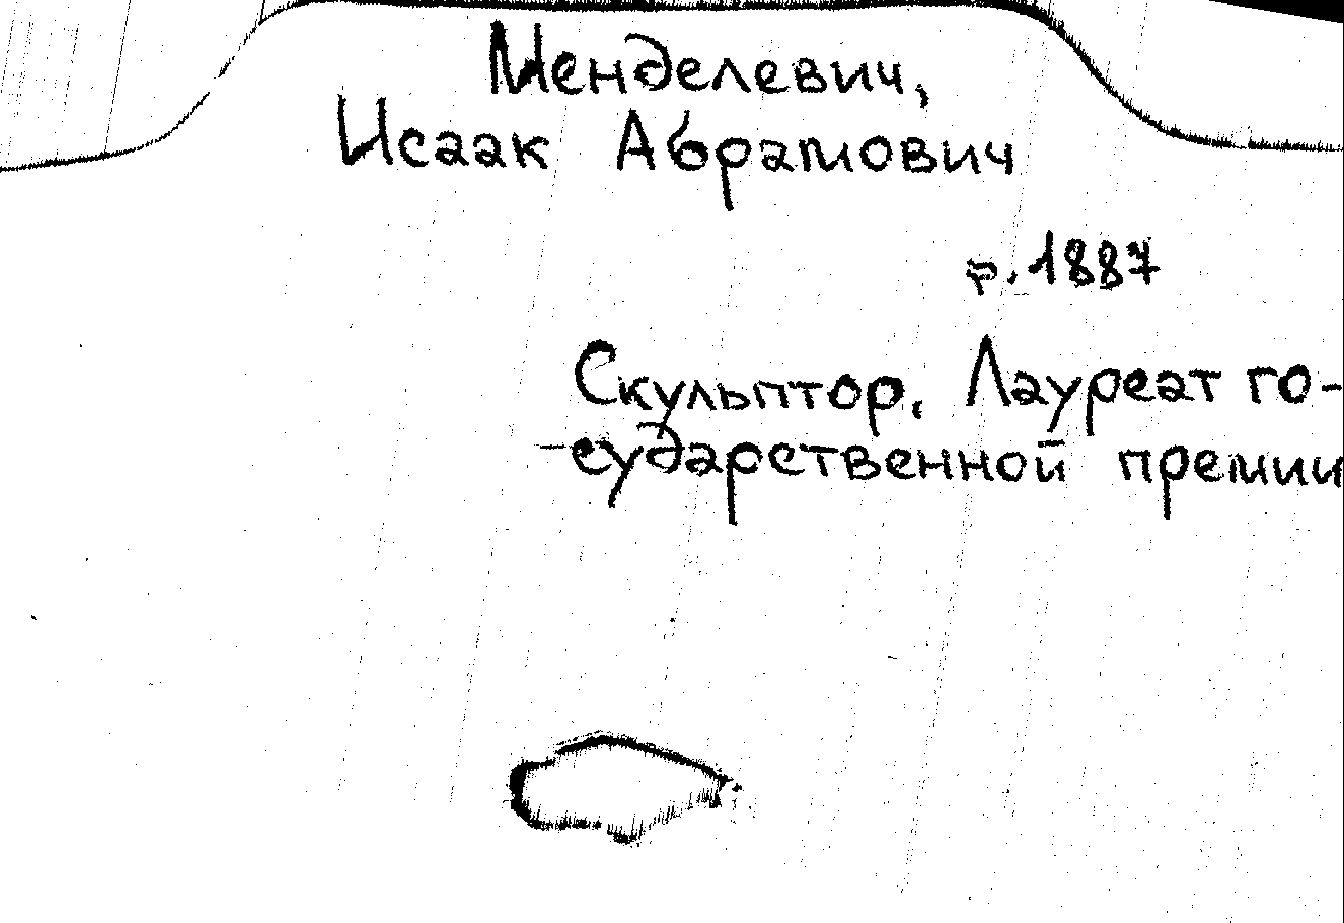 Менделевич,
Исаак Абрамович
р. 1887
Скульптор. Лауреат го-
сударственной премии